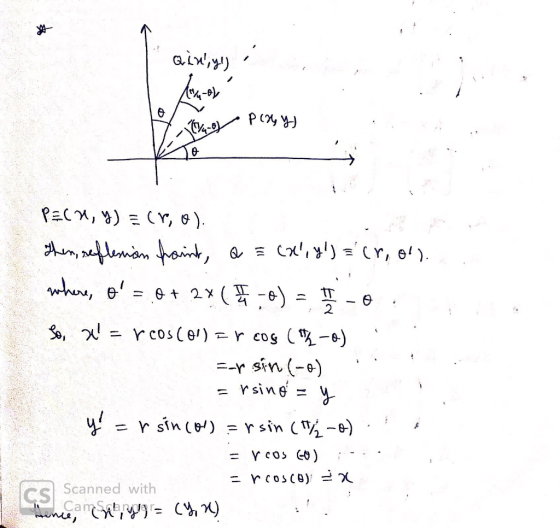 Q(x', y')
(π/4-θ)
θ
(π/4-θ)
P(x, y)
θ
P≡(x, y) ≡ (r, θ).
Then, reflexion point, Q ≡ (x', y') ≡ (r, θ').
where, θ' = θ + 2x(π/4 -θ) = π/2 - θ
So, x' = r cos(θ') = r cos (π/2-θ)
=-r sin(-θ)
= r sinθ = y
y' = r sin(θ') = r sin (π/2-θ)
= r cos (-θ)
= r cos(θ) = x
Hence, (x', y') = (y, x)
CS Scanned with
CamScanner